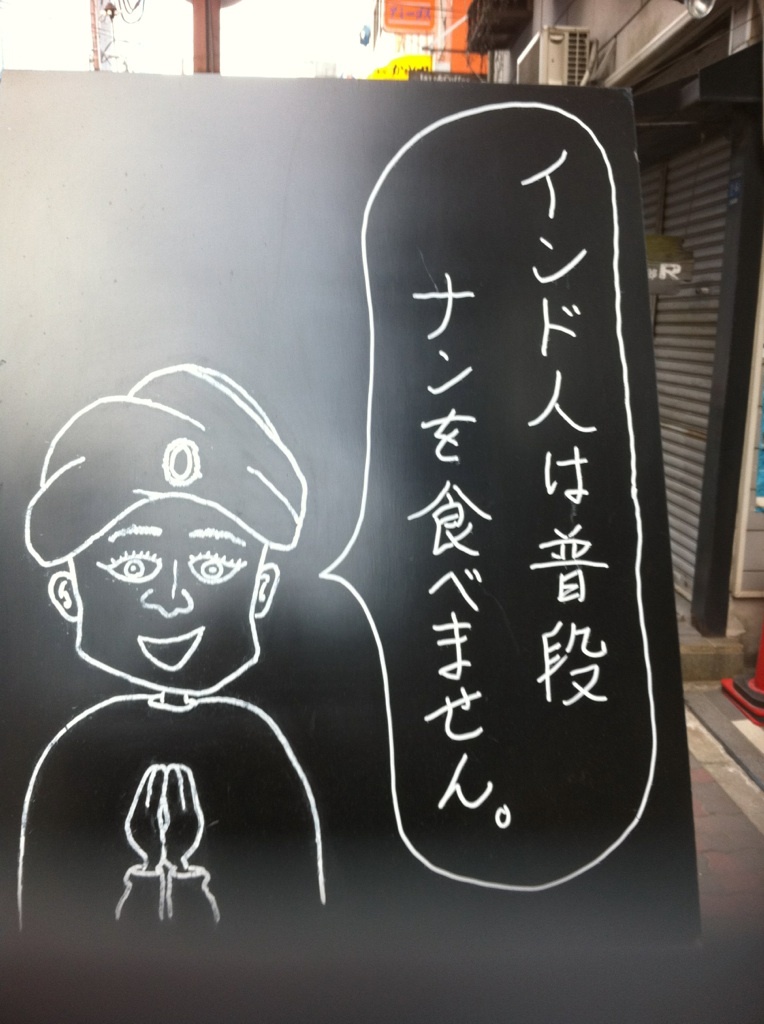 インド人は普段
ナンを食べません。